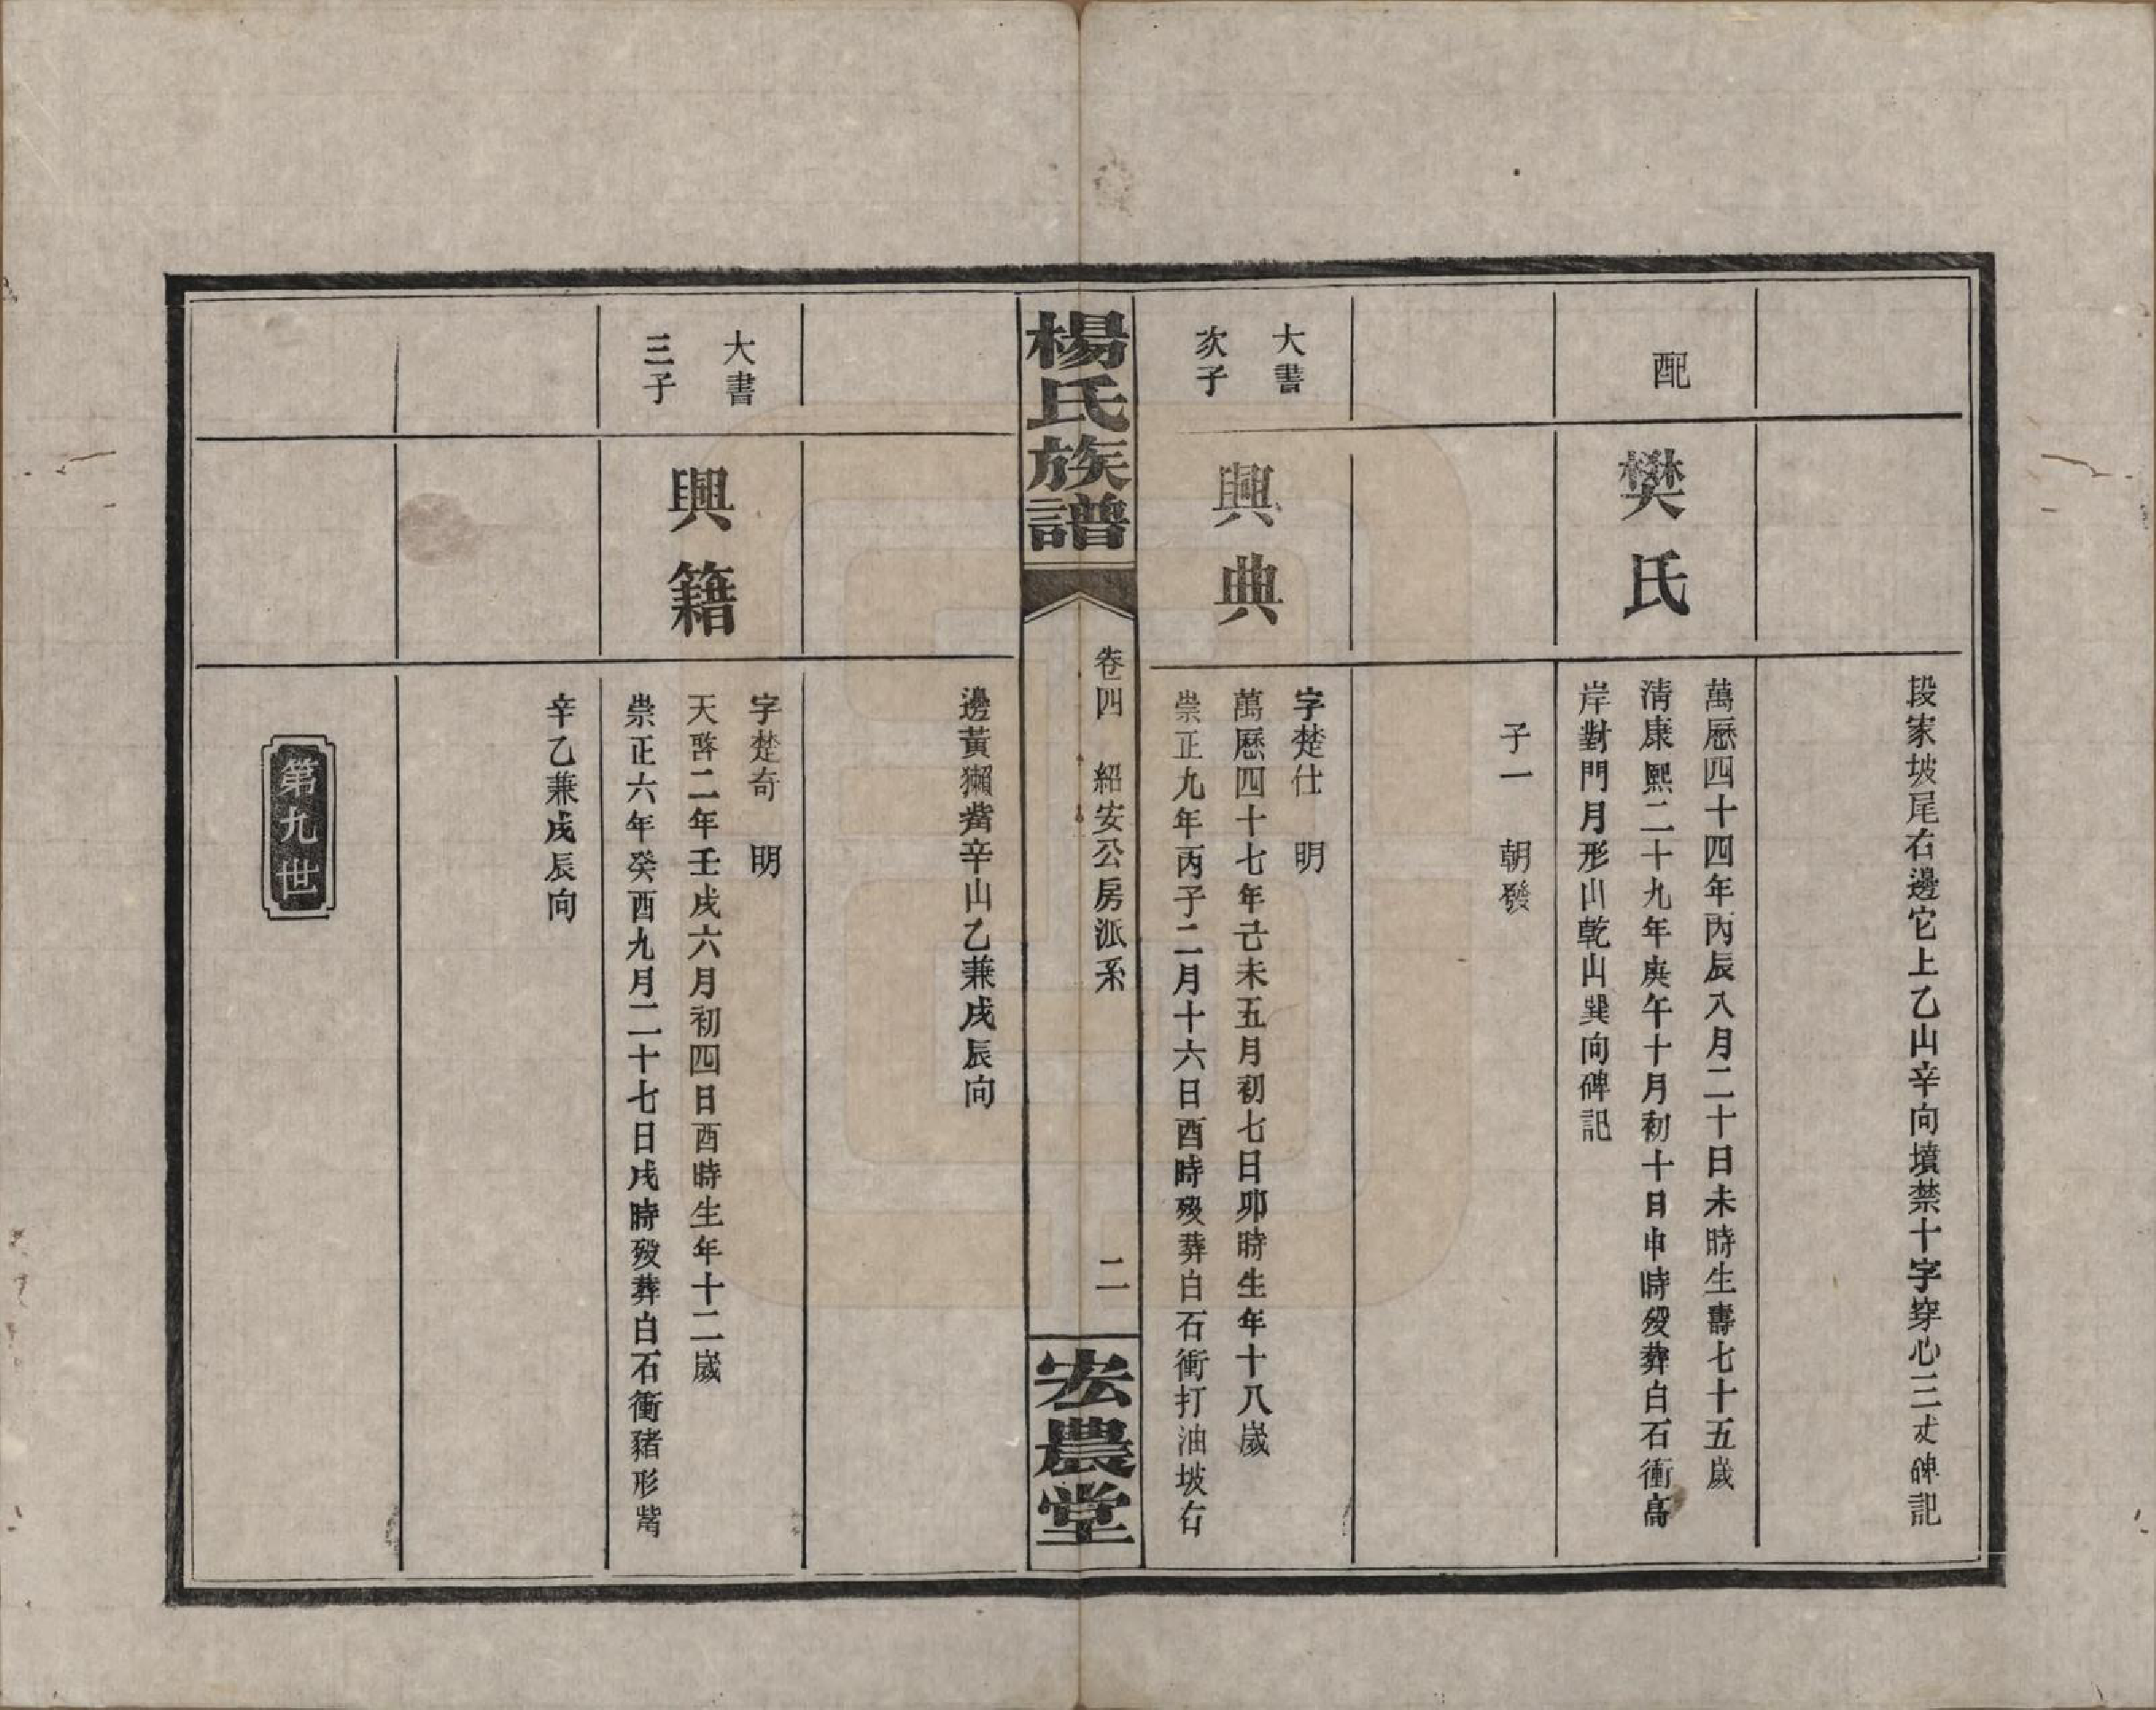 段家坡尾右邊它上乙山辛向墳禁十字穿心三丈碑記
配
樊氏
萬厯四十四年丙辰八月二十日未時生壽七十五歲
清康熙二十九年庚午十月初十日申時歿葬白石衝高
岸對門月形山乾山巽向碑記
子一　朝發
大書
次子
興典
字楚仕　明
萬厯四十七年己未五月初七日卯時生年十八歲
崇正九年丙子二月十六日酉時歿葬白石衝打油坡右
楊氏族譜
卷四　紹安公房派系
二
宏農堂
邊黃獺嘴辛山乙兼戌辰向
大書
三子
興籍
字楚奇　明
天啓二年壬戌六月初四日酉時生年十二歲
崇正六年癸酉九月二十七日戌時歿葬白石衝豬形嘴
辛乙兼戌辰向
第九世